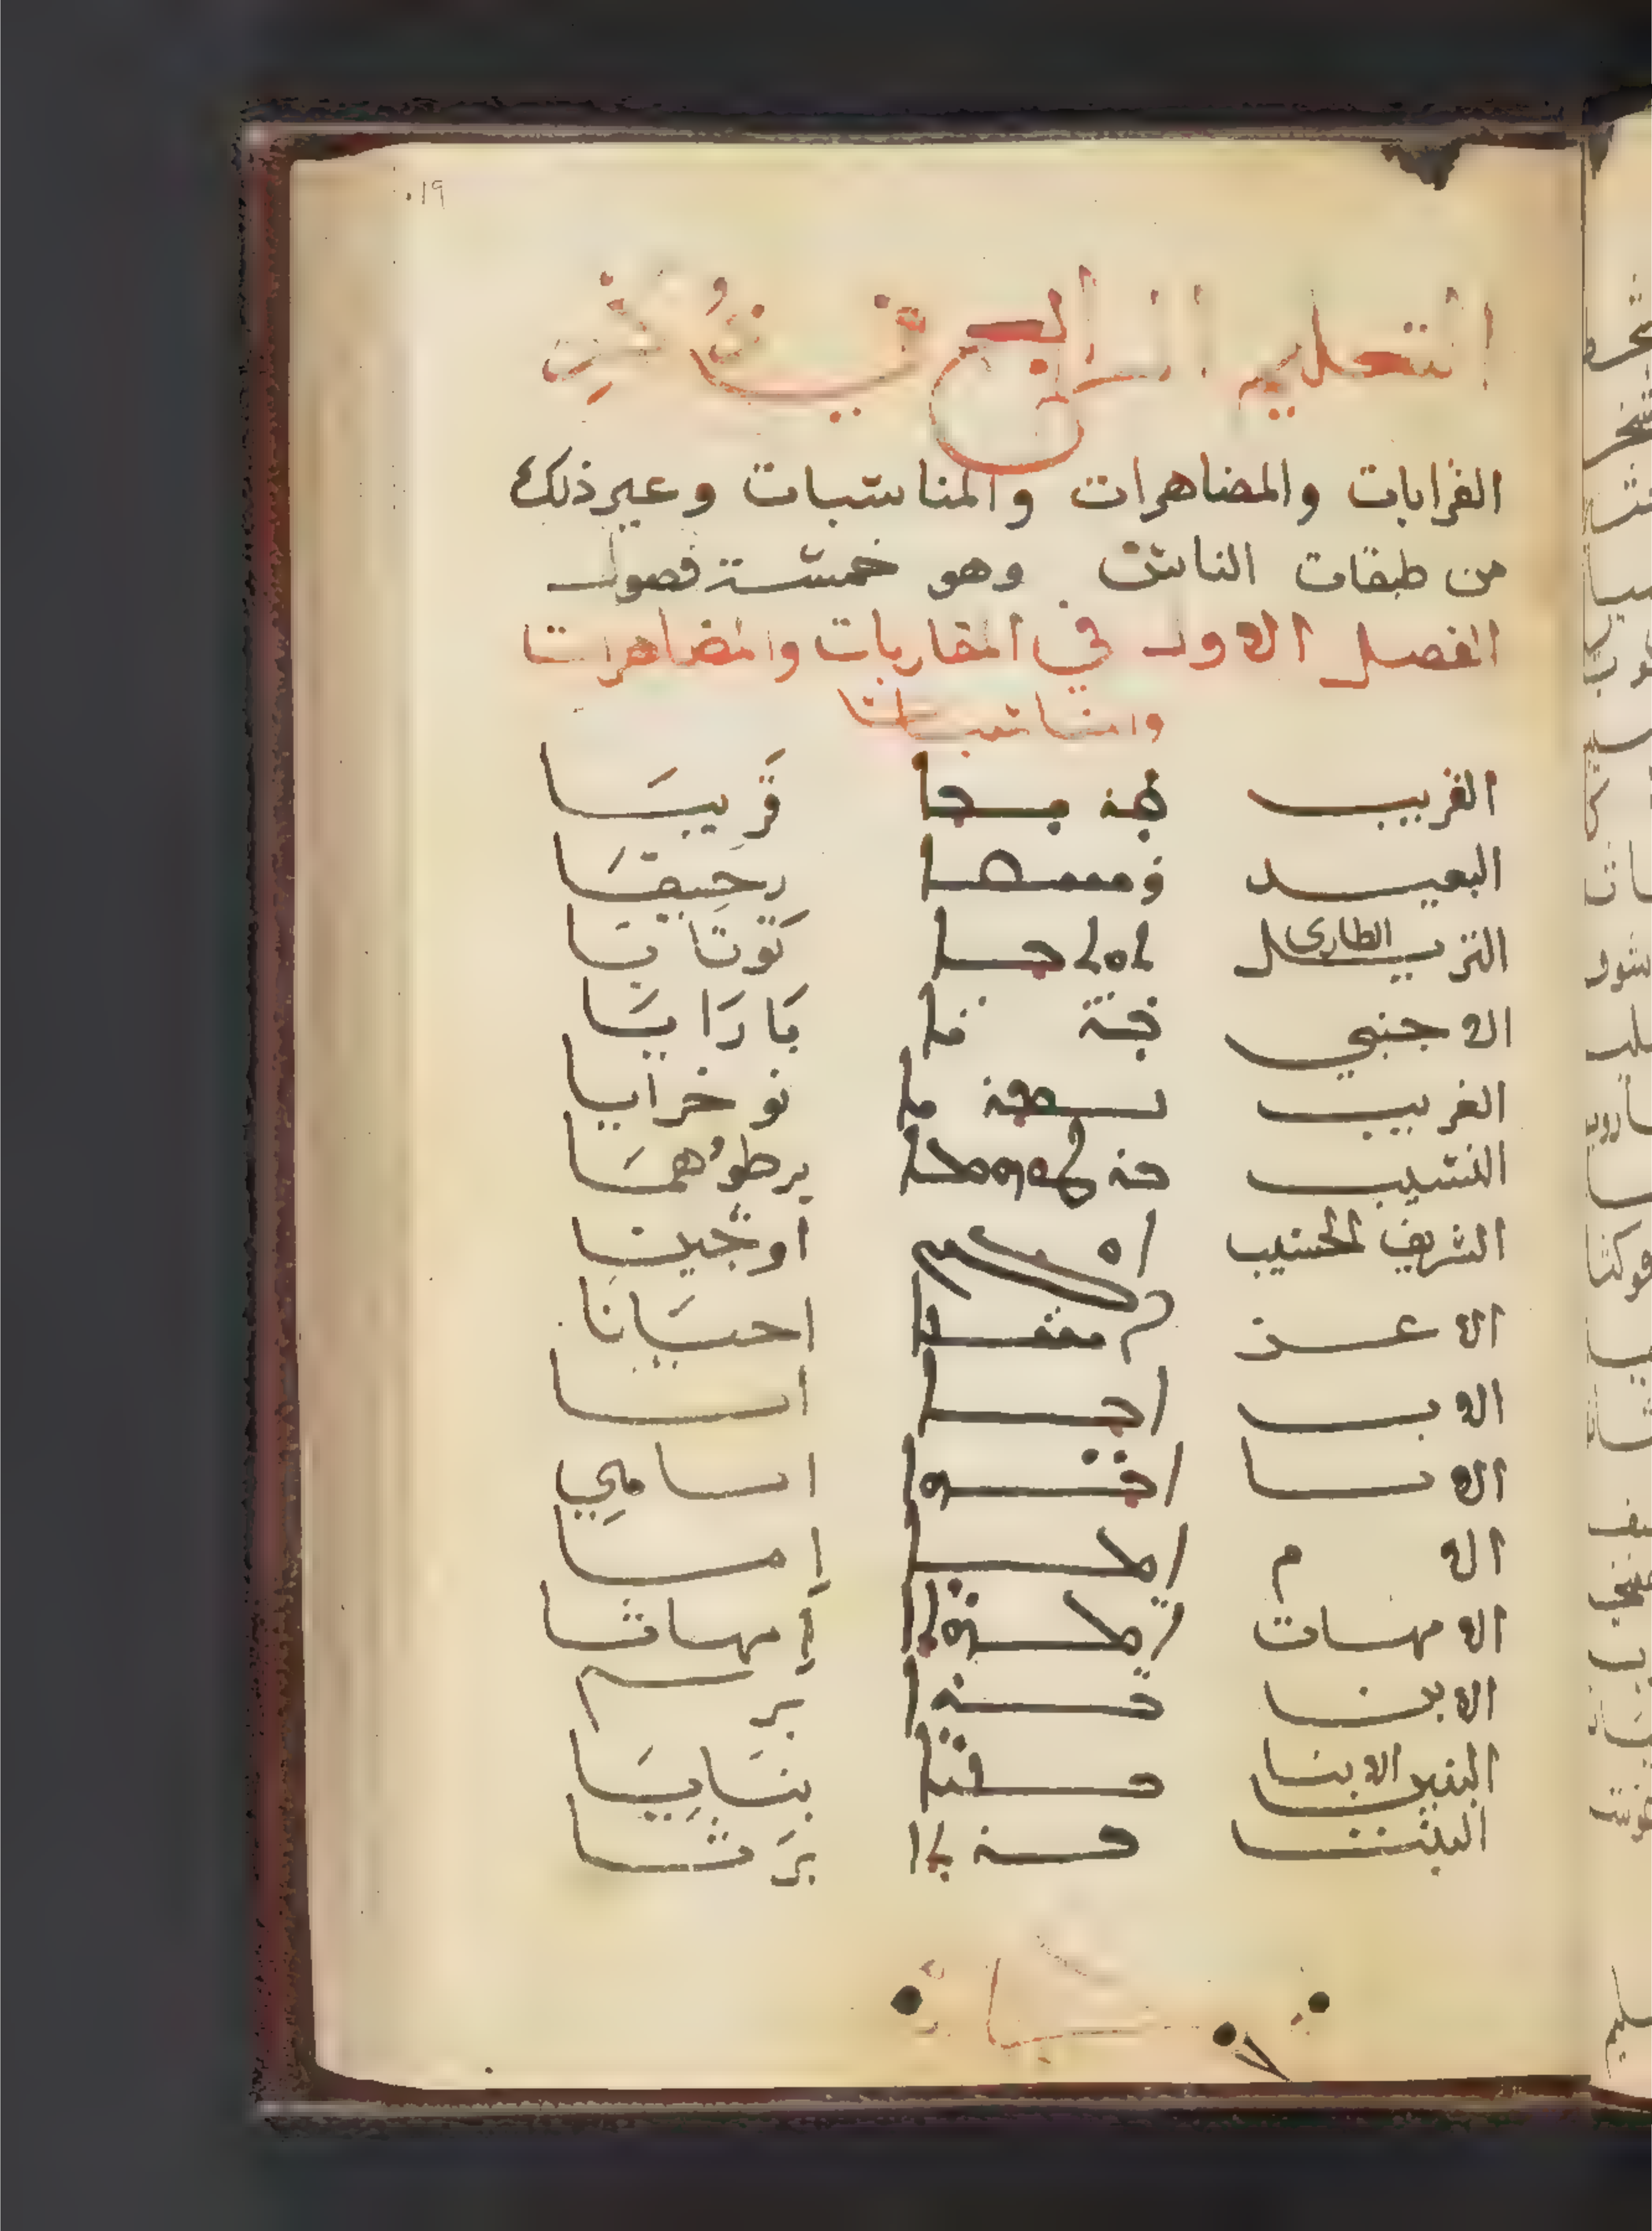 ٠١٩
التعليم الرابع في ذكر
القرابات والمضاهرات والمناسبات وغير ذلك
من طبقات الناس وهو خمسة فصول
الفصل الاول في المقاربات والمضاهرات
والمناسبات
القريب ܩܪܝܒܐ قَريبَا
البعيد ܪܚܝܩܐ رحِيقَا
التزيل الطاري ܬܘܬܒܐ تَوتَابَا
الاجنبي ܒܪܝܐ بَارَايَا
الغريب ܢܘܟܪܝܐ نوخرايا
النسيب برطوُهمَا
الشريف الحسيب اوجينِا
الاعز ܐܚܝܢܐ احيَانَا
الاب ܐܒܐ ابا
الابا اباهي
الام ܐܡܐ اِما
الامهات اِمهاثا
الابن ܒܪܐ برا
البنين الابنا ܒܢܝܐ بنَايَا
البنت ܒܪܬܐ بَرثا